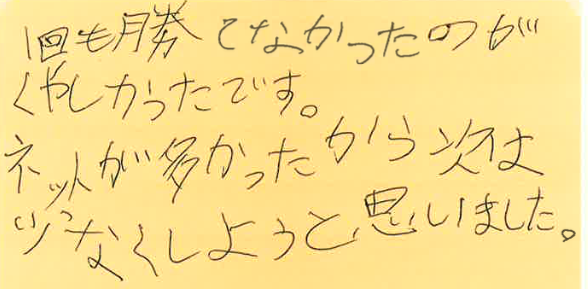 1回も勝てなかったのが
くやしかったです。
ネットが多かったから次は
少なくしようと思いました。